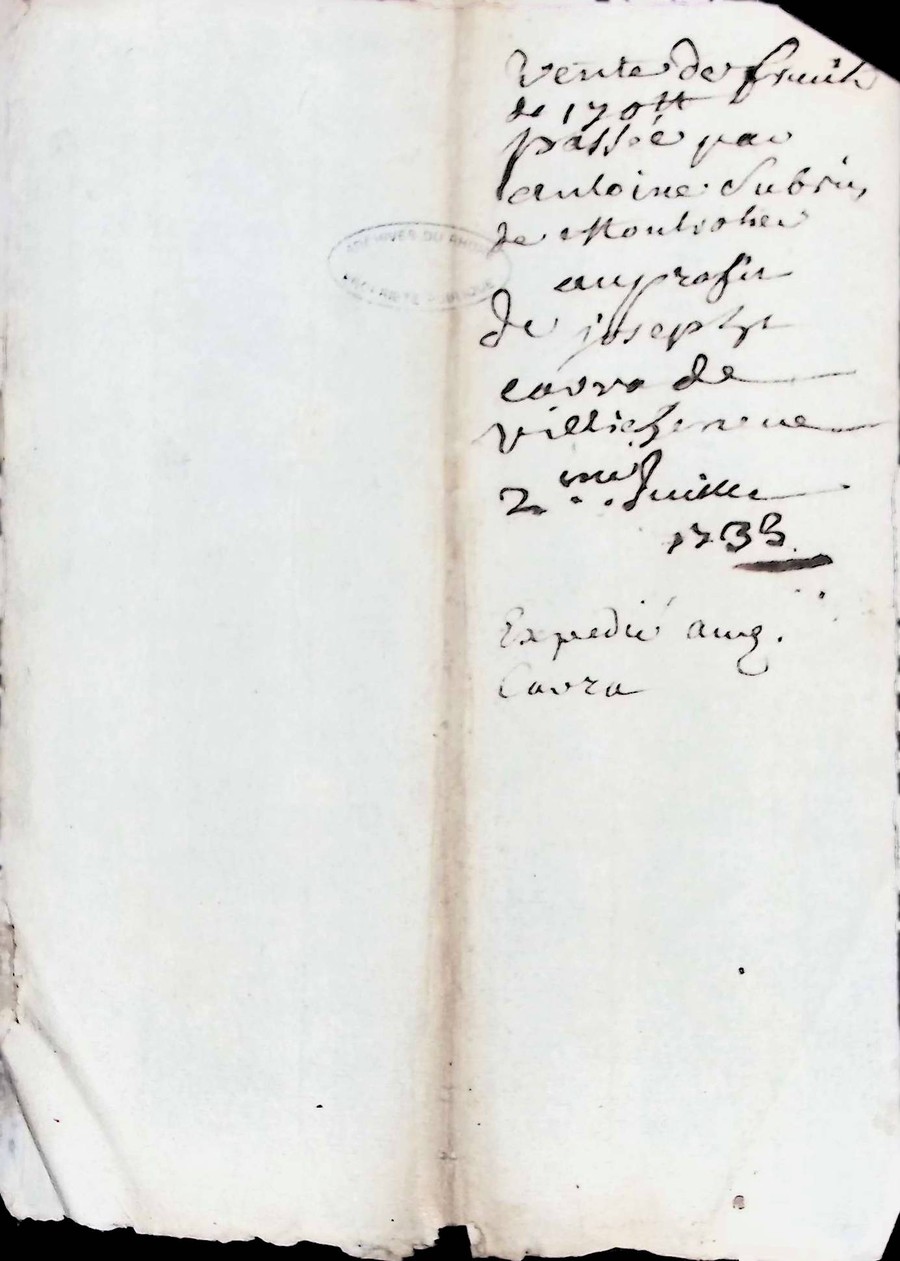 Vente de fruits
de 170 ₶
passée par
antoine Subrin
de Montrotier
au profit
de joseph
cavra de
Villecheneve
2me Juillet
1733
ARCHIVES DU RHONE
Expedié aud.
Cavra